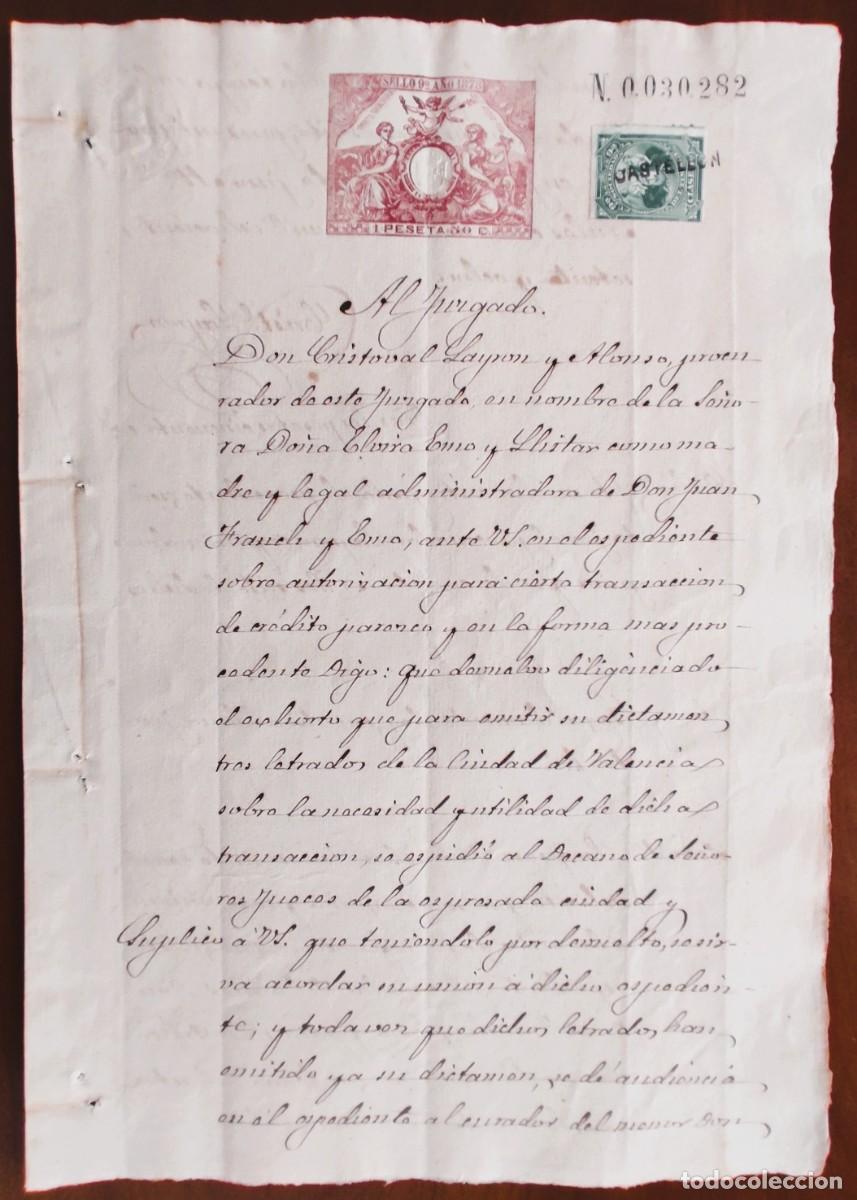 SELLO 9º AÑO 1878
N. 0.030.282
CASTELLON
1 PESETA 50 C.
Al Jurgado.
Don Cristoval Layron y Alonso, procu-
rador de este Jurgado, en nombre de la Seño-
ra Doña Elvira Emo y Llistar como ma-
dre y legal administradora de Don Juan
Franch y Emo, ante VS. en el espediente
sobre autorizacion para cierta transaccion
de crédito pareseo y en la forma mas pro-
cedente Digo: que devuelvo diligenciado
el exhorto que para emitir su dictamen
tres letrados de la Ciudad de Valencia
sobre la necesidad y utilidad de dicha
transaccion, se espidió al Decano de Seño-
res Jueces de la espresada ciudad y
Suplico á VS. que teniéndolo por devuelto, se sir-
va acordar su union á dicho espedien-
te; y toda vez que dichos letrados han
emitido ya su dictamen, se dé audiencia
en el espediente al curador del menor Don
todocoleccion